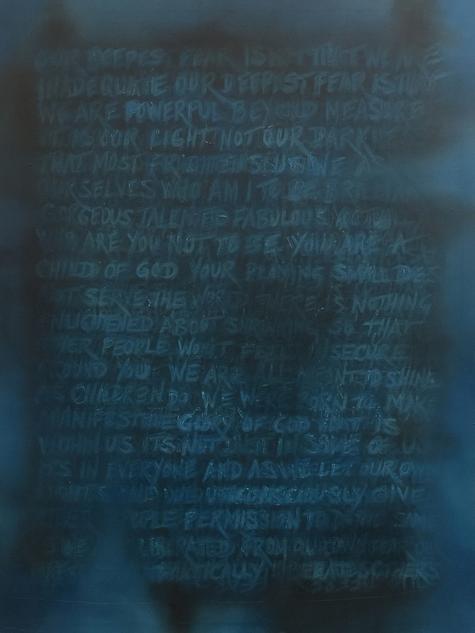 OUR DEEPEST FEAR IS NOT THAT WE ARE
INADEQUATE OUR DEEPEST FEAR IS THAT
WE ARE POWERFUL BEYOND MEASURE
IT IS OUR LIGHT NOT OUR DARKNESS
THAT MOST FRIGHTENS US WE
OURSELVES WHO AM I TO BE
GORGEOUS TALENTED FABULOUS
WHO ARE YOU NOT TO BE YOU ARE A
CHILD OF GOD YOUR PLAYING SMALL DOES
NOT SERVE THE WORLD THERE IS NOTHING
ENLIGHTENED ABOUT SO THAT
OTHER PEOPLE WON'T FEEL INSECURE
AROUND YOU WE ARE ALL MEANT TO SHINE
AS CHILDREN DO WE WERE BORN TO MAKE
MANIFEST THE GLORY OF GOD THAT IS
WITHIN US ITS NOT JUST IN SOME OF US
ITS IN EVERYONE AND AS WE LET OUR OWN
LIGHT AND WE UNCONSCIOUSLY GIVE
OTHER PEOPLE PERMISSION TO DO THE SAME
LIBERATED FROM OUR OWN FEAR OUR
AUTOMATICALLY LIBERATES OTHERS